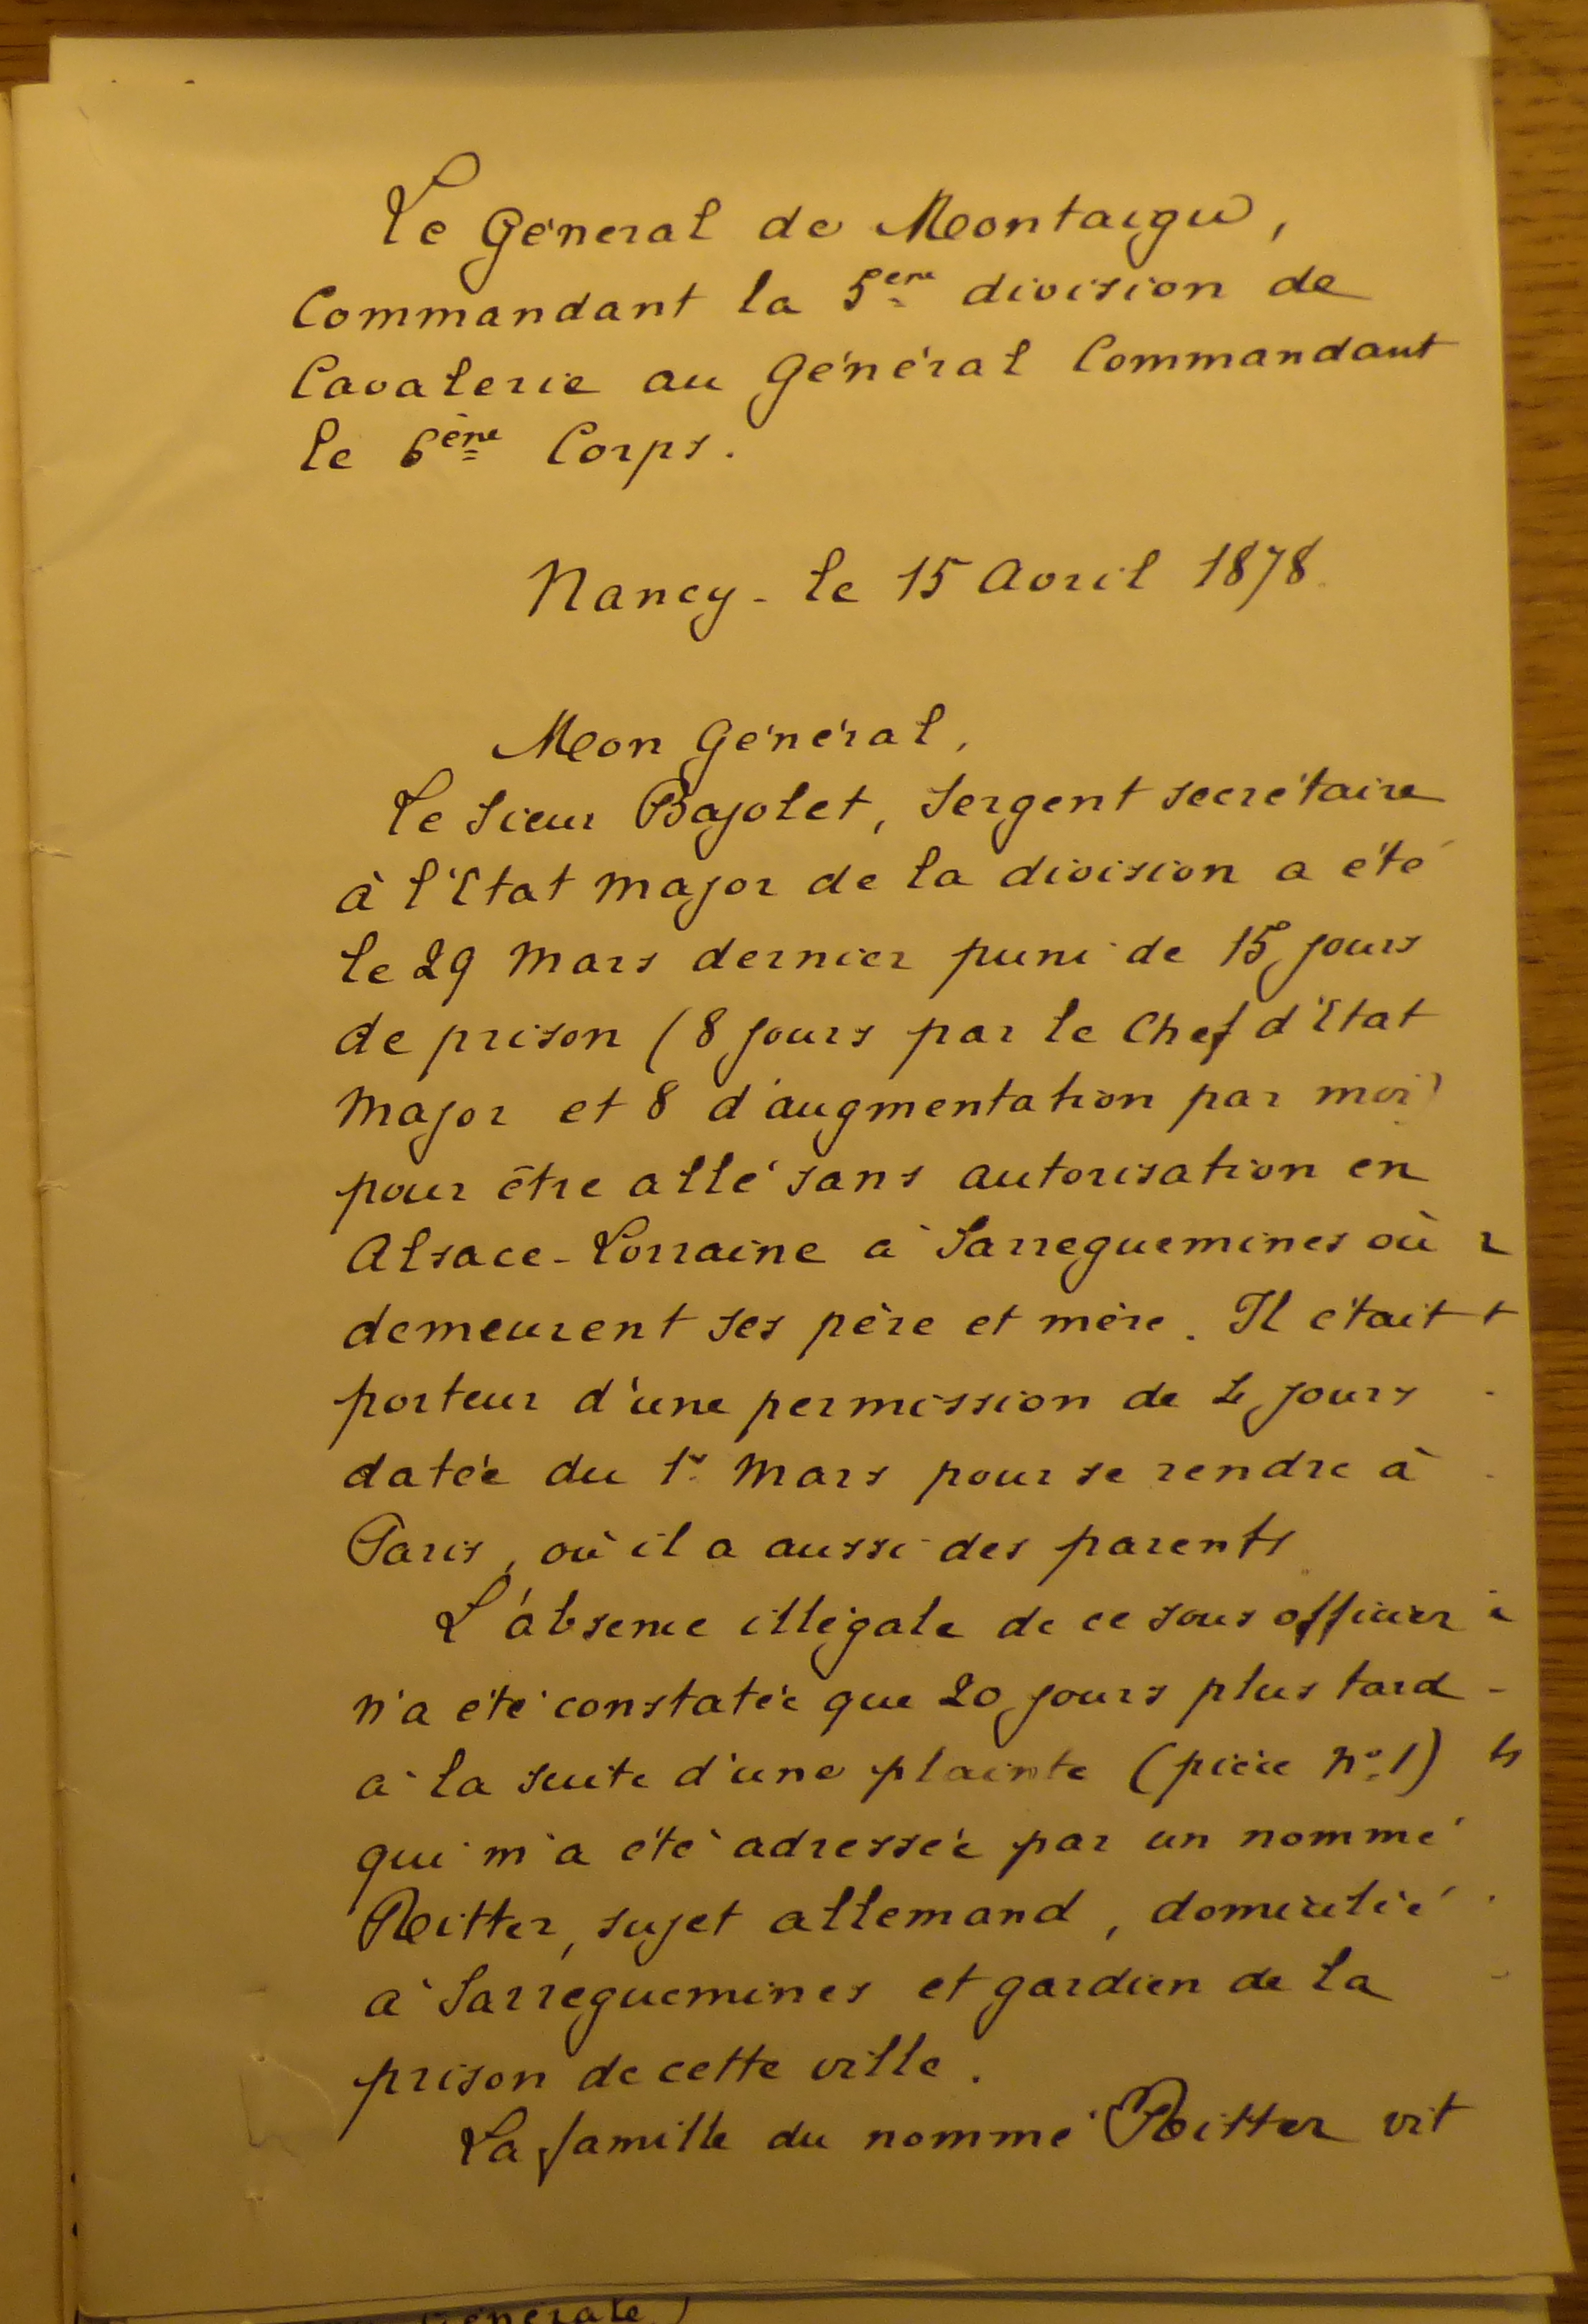 Le Général de Montaigu,
Commandant la 5ème division de
Cavalerie au Général Commandant
le 6ème Corps.
Nancy - le 15 Avril 1878
Mon Général,
Le Sieur Bajolet, Sergent secrétaire
à l'Etat Major de la division a été
le 29 Mars dernier puni de 15 jours
de prison (8 jours par le Chef d'Etat
Major et 8 d'augmentation par moi)
pour être allé sans autorisation en
Alsace-Lorraine à Sarreguemines où
demeurent ses père et mère. Il était
porteur d'une permission de 4 jours
datée du 1r Mars pour se rendre à
Paris, où il a aussi des parents
L'absence illégale de ce sous officier
n'a été constatée que 20 jours plus tard
à la suite d'une plainte (pièce no 1)
qui m'a été adressée par un nommé
Reitter, sujet allemand, domicilié
à Sarreguemines et gardien de la
prison de cette ville.
La famille du nommé Reitter vit